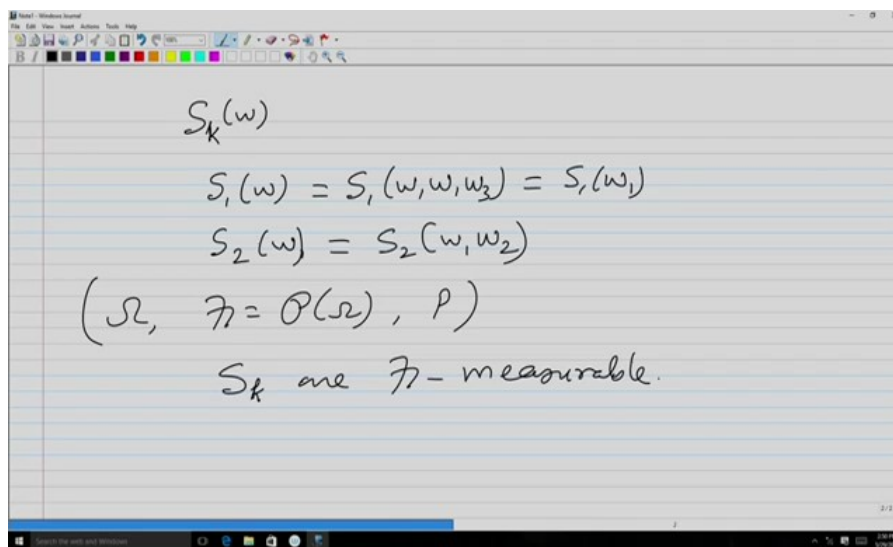 Note1 - Windows Journal
File Edit View Insert Actions Tools Help
B I
S_k(w)
S_1(w) = S_1(w, w, w_3) = S_1(w_1)
S_2(w) = S_2(w, w_2)
(Ω, ℱ = 𝒫(Ω), P)
S_k are ℱ - measurable.
2/2
2
Search the web and Windows